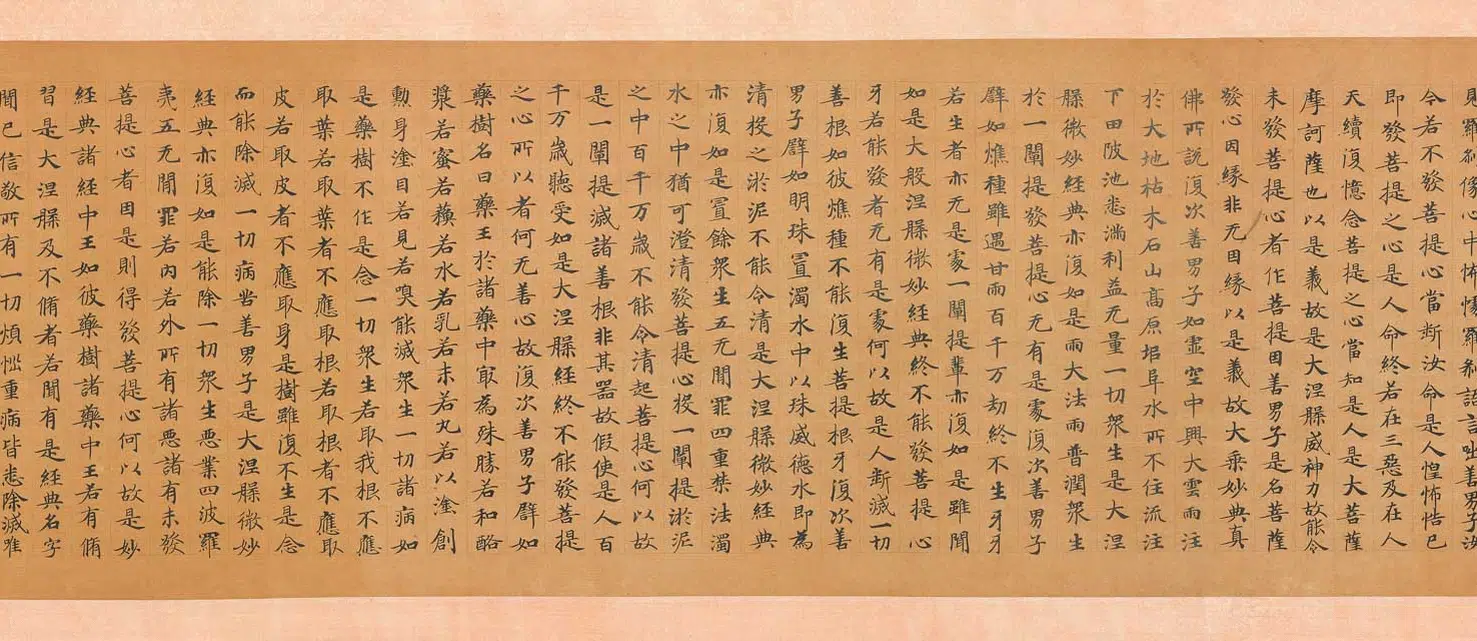 見羅剎像心中怖懅羅剎語言咄善男子汝
今若不發菩提心當斷汝命是人惶怖悟已
即發菩提之心是人命終若在三惡及在人
天續復憶念菩提之心當知是人是大菩薩
摩訶薩也以是義故是大涅槃威神力故能令
未發菩提心者作菩提因善男子是名菩薩
發心因緣非无因緣以是義故大乘妙典真
佛所說復次善男子如虛空中興大雲雨注
於大地枯木石山高原埠阜水所不住流注
下田陂池悉滿利益无量一切眾生是大涅
槃微妙經典亦復如是雨大法雨普潤眾生
於一闡提發菩提心无有是處復次善男子
譬如燋種雖遇甘雨百千万劫終不生牙牙
若生者亦无是處一闡提輩亦復如是雖聞
如是大般涅槃微妙經典終不能發菩提心
牙若能發者无有是處何以故是人斷滅一切
善根如彼燋種不能復生菩提根牙復次善
男子譬如明珠置濁水中以珠威德水即為
清投之淤泥不能令清是大涅槃微妙經典
亦復如是置餘眾生五无間罪四重禁法濁
水之中猶可澄清發菩提心投一闡提淤泥
之中百千万歲不能令清起菩提心何以故
是一闡提滅諸善根非其器故假使是人百
千万歲聽受如是大涅槃經終不能發菩提
之心所以者何无善心故復次善男子譬如
藥樹名曰藥王於諸藥中最為殊勝若和酪
漿若蜜若蘇若水若乳若末若丸若以塗創
勲身塗目若見若嗅能滅眾生一切諸病如
是藥樹不作是念一切眾生若取我根不應
取葉若取葉者不應取根若取根者不應取
皮若取皮者不應取身是樹雖復不生是念
而能除滅一切病苦善男子是大涅槃微妙
經典亦復如是能除一切眾生惡業四波羅
夷五无間罪若內若外所有諸惡諸有未發
菩提心者因是則得發菩提心何以故是妙
經典諸經中王如彼藥樹諸藥中王若有脩
習是大涅槃及不脩者若聞有是經典名字
聞已信敬所有一切煩惱重病皆悉除滅唯